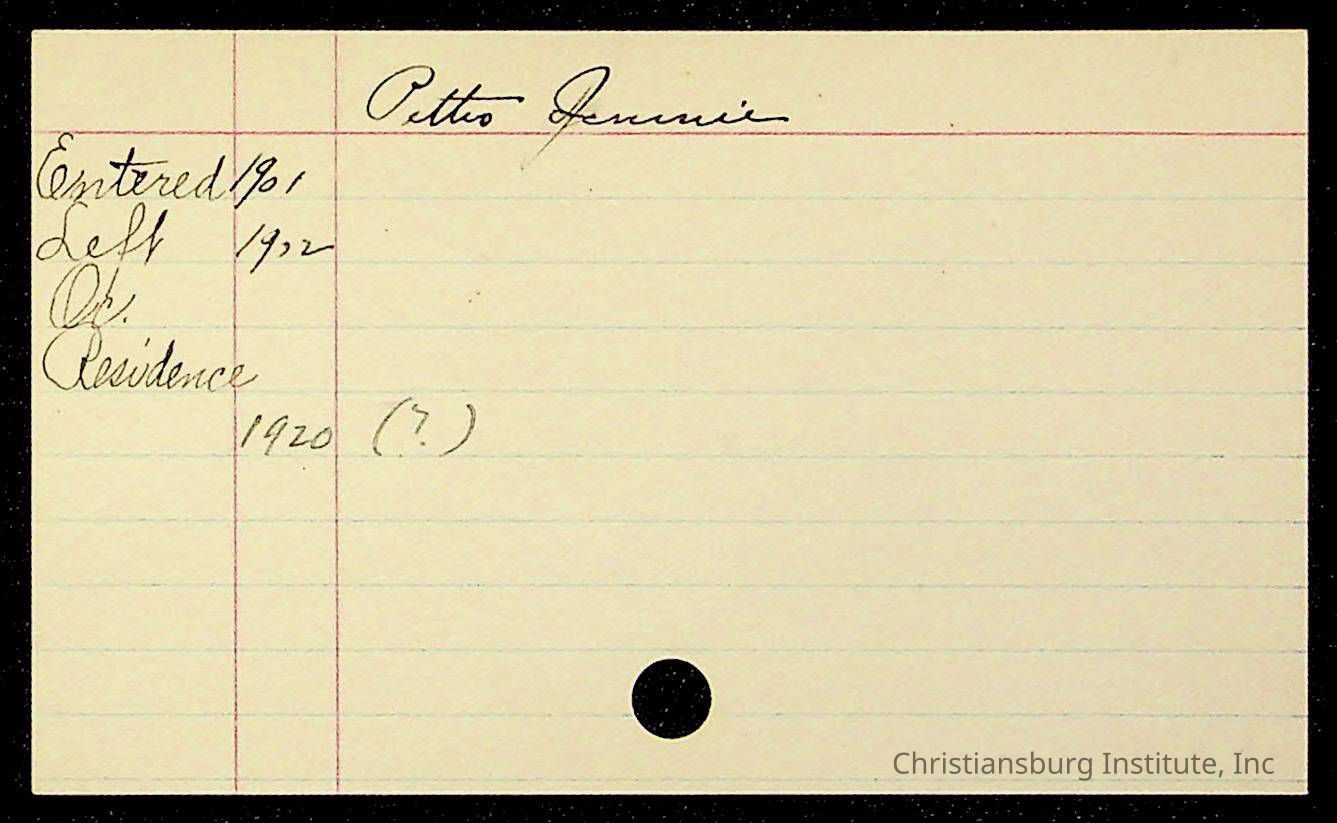 Pettis Jennie
Entered 1901
Left 1902
Oc.
Residence
1920 (?)
Christiansburg Institute, Inc